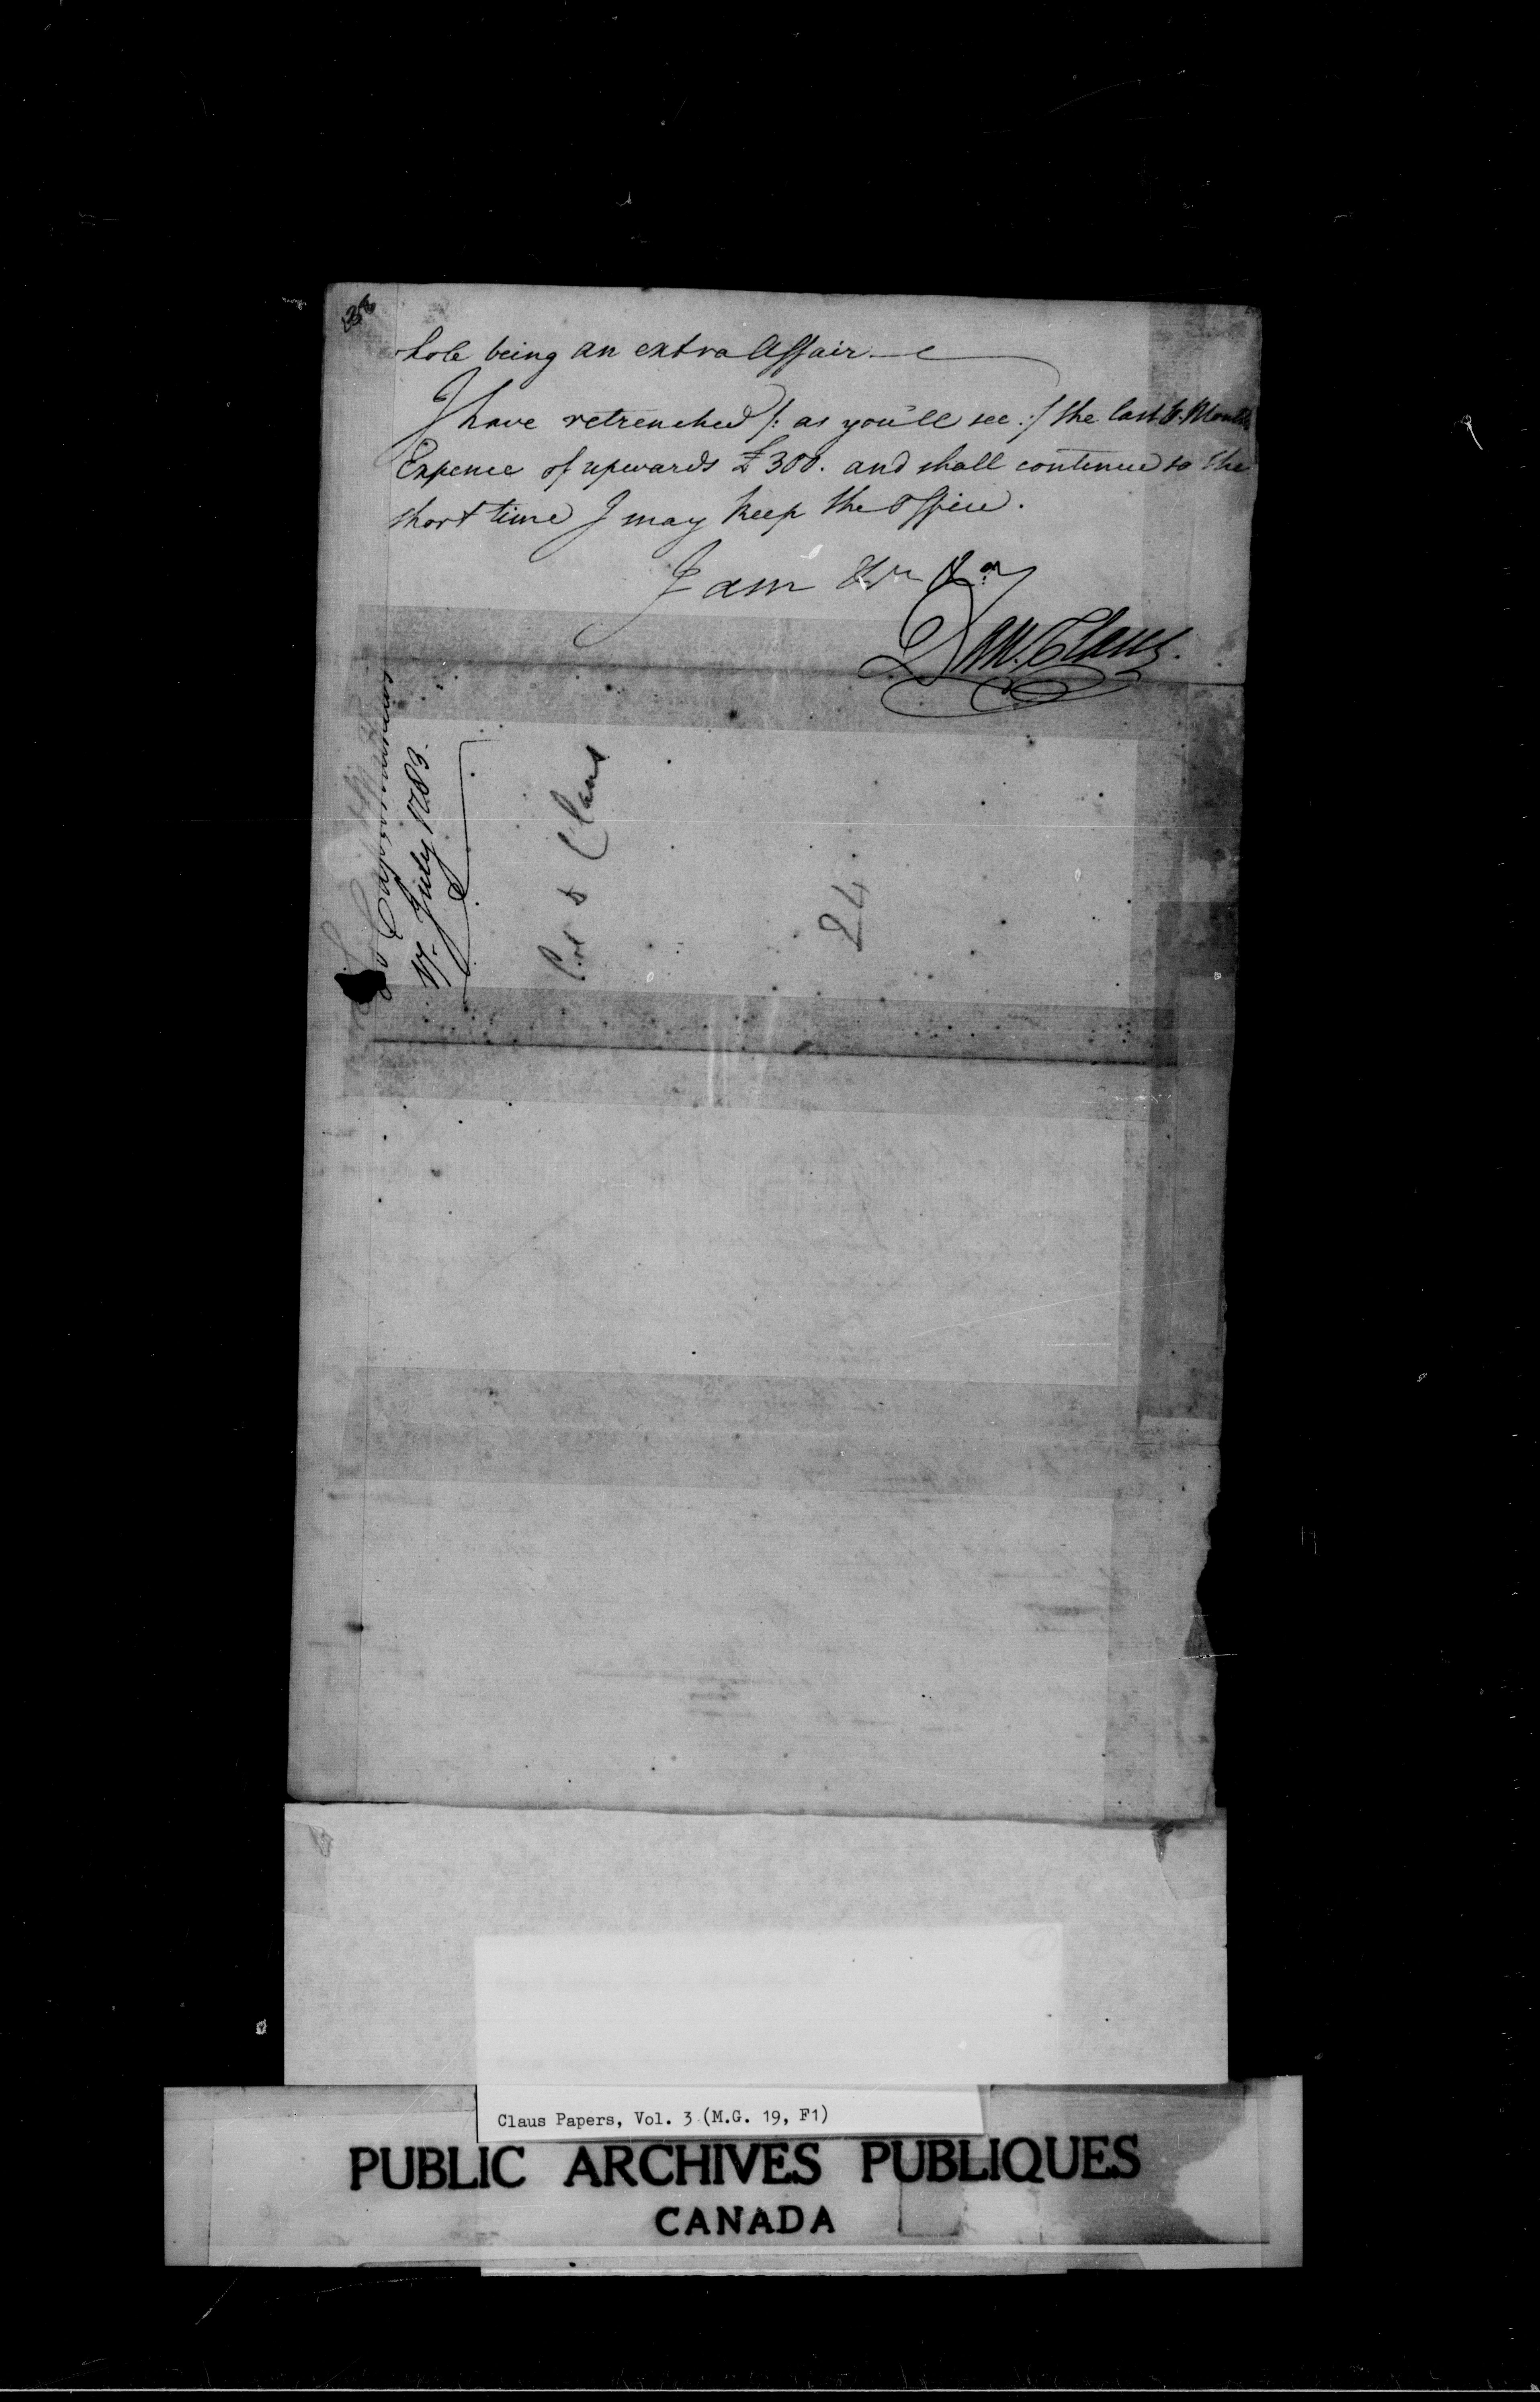 hole being an extra Affair.
I have retrenched /: as you'll see :/ the last 6. Months
Expence of upwards £300. and shall continue so the
short time I may keep the Office.
I am &c. &c.
Dan. Claus.
to Capt. Mathews
17. July 1783.
Col D Claus
24
Claus Papers, Vol. 3 (M.G. 19, F1)
PUBLIC ARCHIVES PUBLIQUES
CANADA